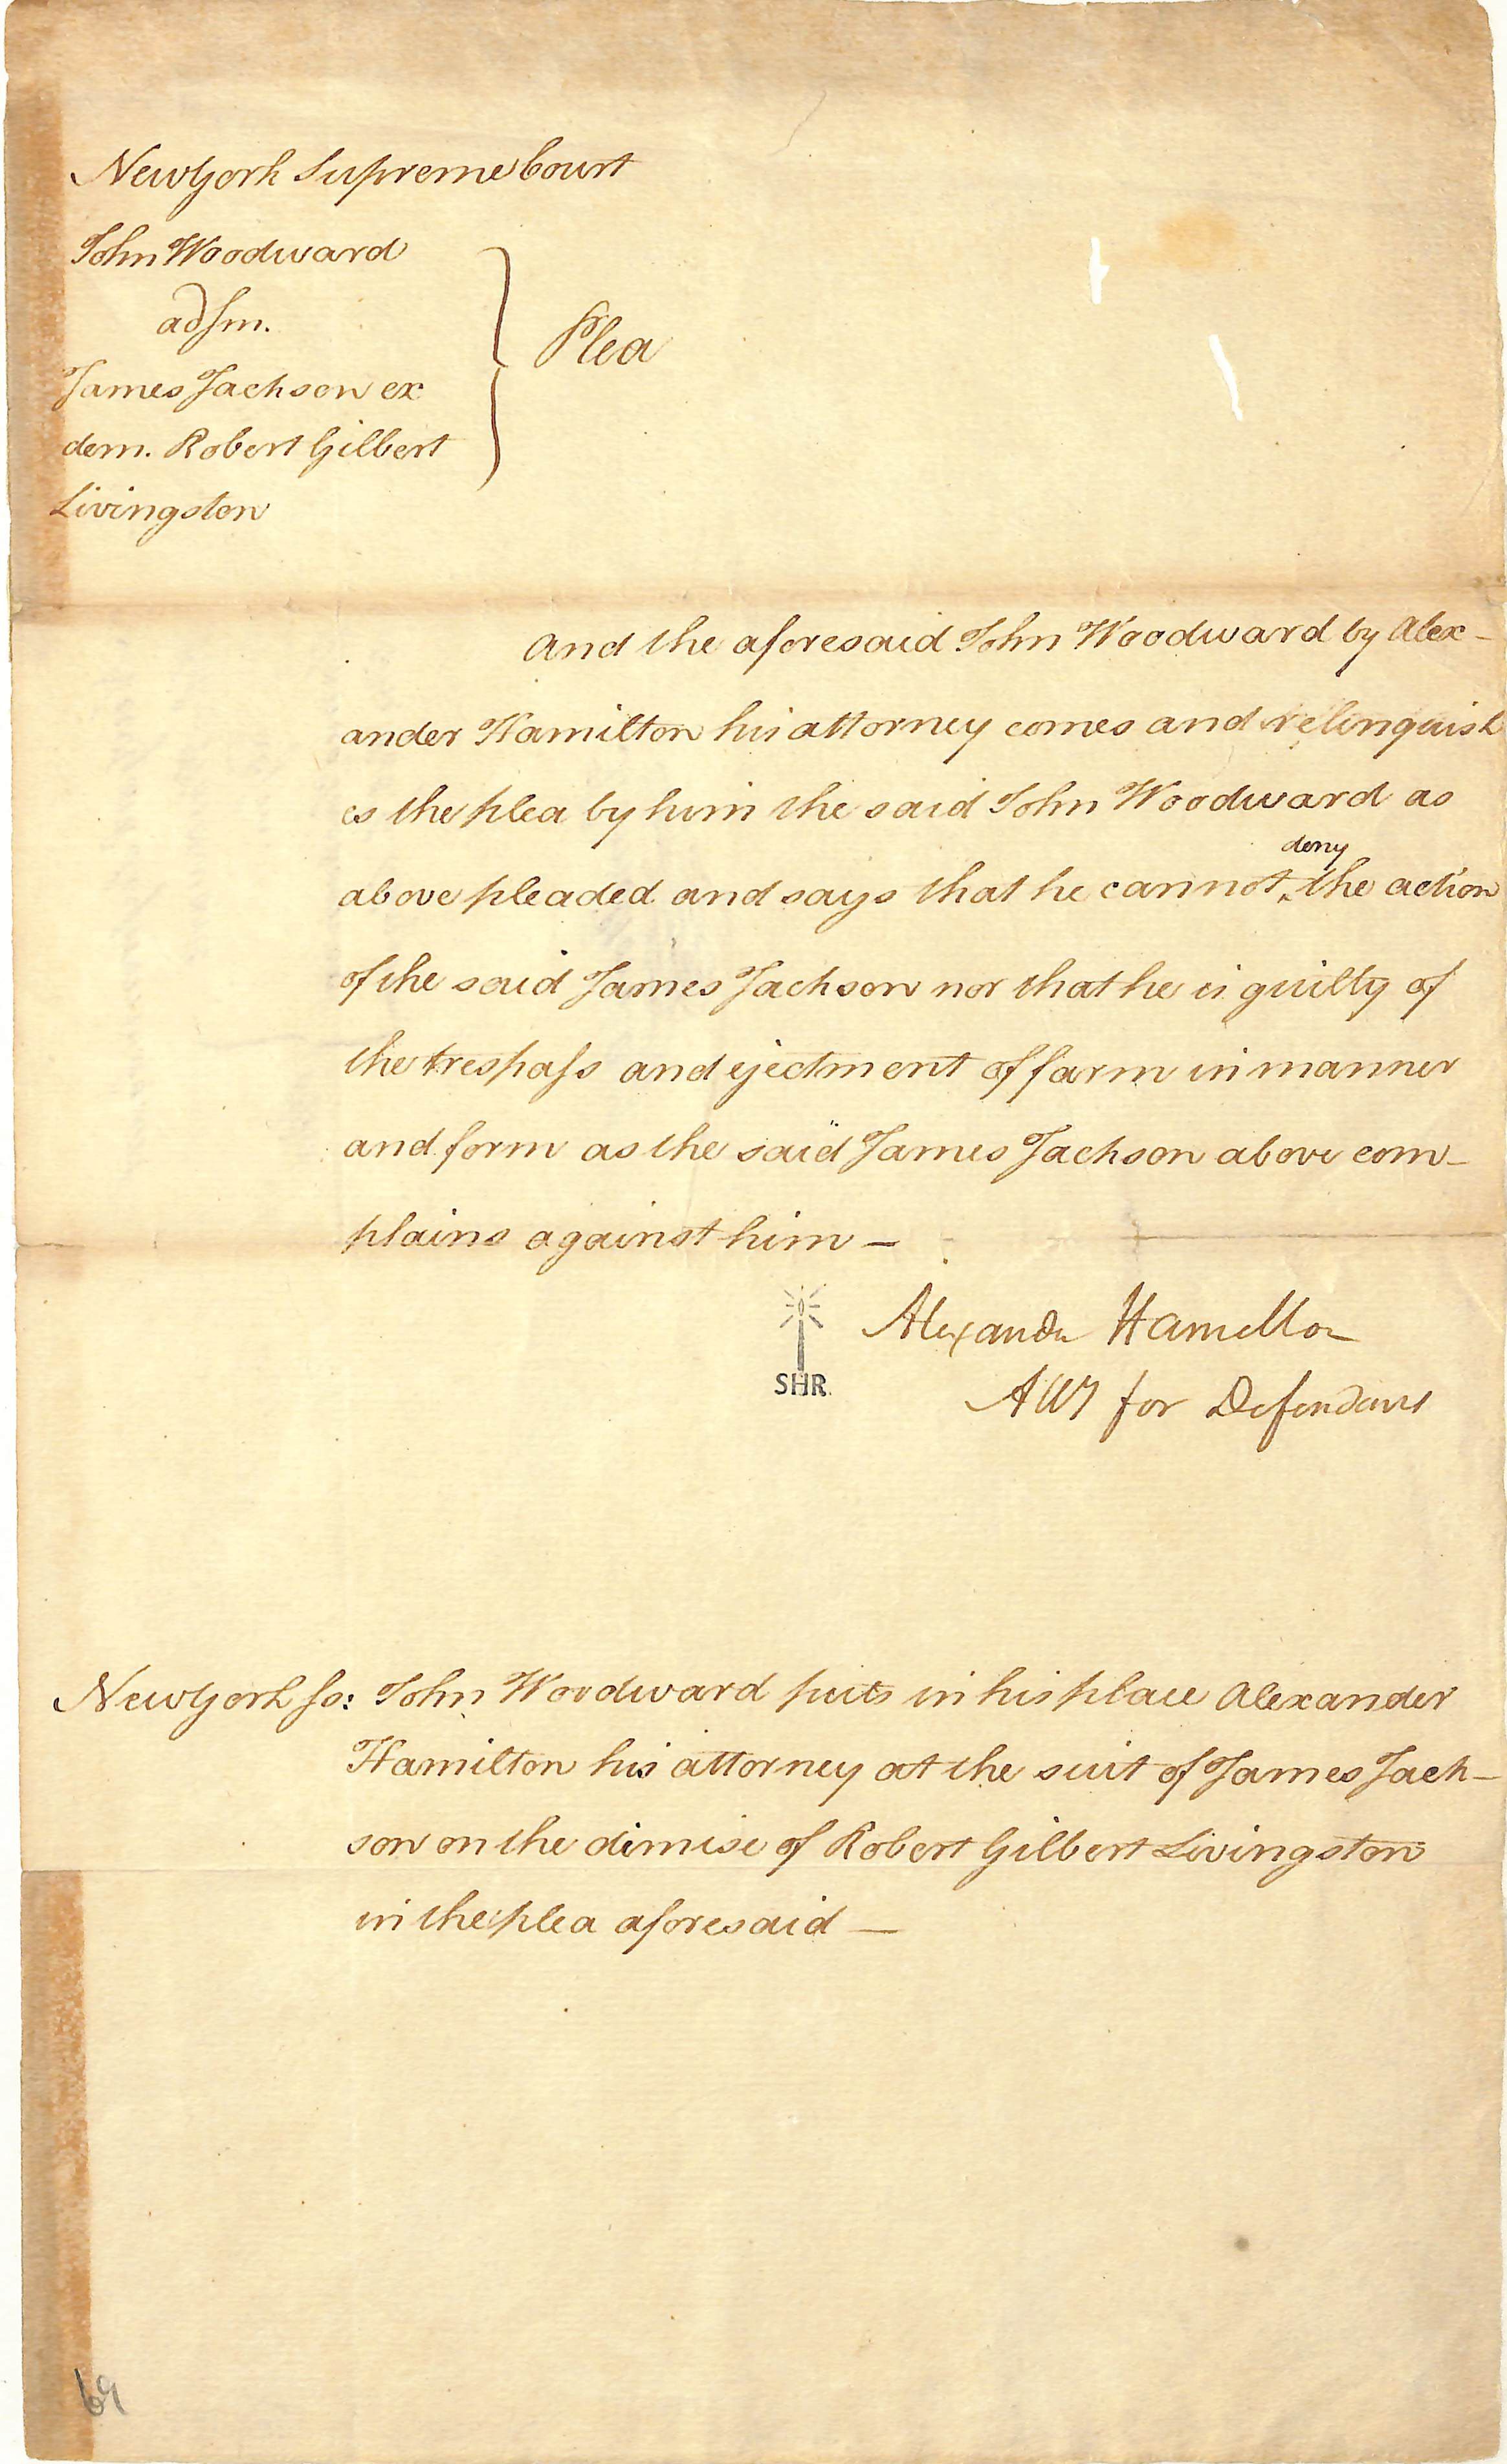 New York Supreme Court
John Woodward
adsm.
James Jackson ex
dem. Robert Gilbert
Livingston
Plea
And the aforesaid John Woodward by Alex-
ander Hamilton his attorney comes and relinquish
es the plea by him the said John Woodward as
deny
above pleaded and says that he cannot ‸ the action
of the said James Jackson nor that he is guilty of
the trespass and ejectment of farm in manner
and form as the said James Jackson above com-
plains against him —
SHR.
Alexander Hamilton
Atty for Defendant
New York ss: John Woodward puts in his place Alexander
Hamilton his attorney at the suit of James Jack-
son on the dimise of Robert Gilbert Livingston
in the plea aforesaid —
69